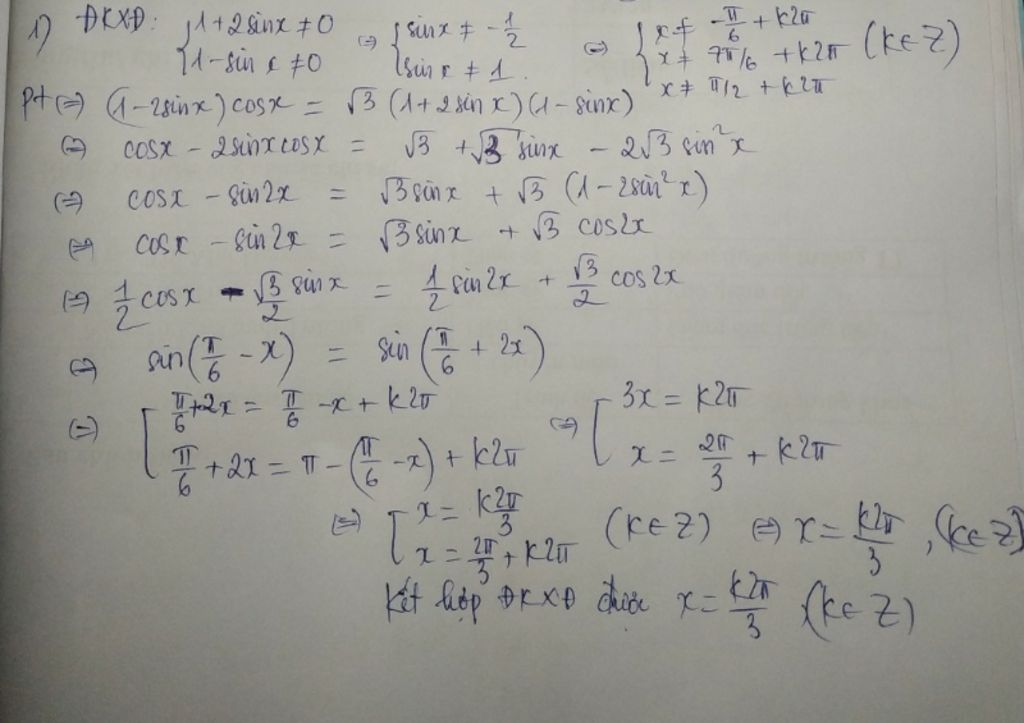 1) ĐKXĐ: { 1+2sinx ≠ 0 ⇔ { sinx ≠ -1/2 ⇔ { x ≠ -π/6 + k2π
1-sinx ≠ 0 sinx ≠ 1. x ≠ 7π/6 + k2π (k∈Z)
x ≠ π/2 + k2π
pt ⇔ (1-2sinx)cosx = √3 (1+2sinx)(1-sinx)
⇔ cosx - 2sinxcosx = √3 + √3 sinx - 2√3 sin²x
⇔ cosx - sin2x = √3sinx + √3 (1-2sin²x)
⇔ cosx - sin2x = √3sinx + √3 cos2x
⇔ 1/2 cosx - √3/2 sinx = 1/2 sin2x + √3/2 cos2x
⇔ sin(π/6 - x) = sin(π/6 + 2x)
⇔ [ π/6+2x = π/6 -x + k2π ⇔ [ 3x = k2π
π/6 + 2x = π - (π/6 - x) + k2π x = 2π/3 + k2π
⇔ [ x = k2π/3 (k∈Z) ⇔ x = k2π/3 , (k∈Z)
x = 2π/3 + k2π
Kết hợp ĐKXĐ được x = k2π/3 , (k∈Z)